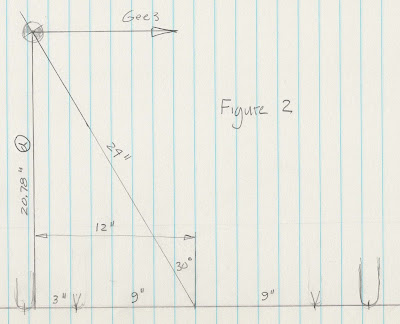 Gees
Figure 2
24"
20.78"
12"
30°
3"
9"
9"